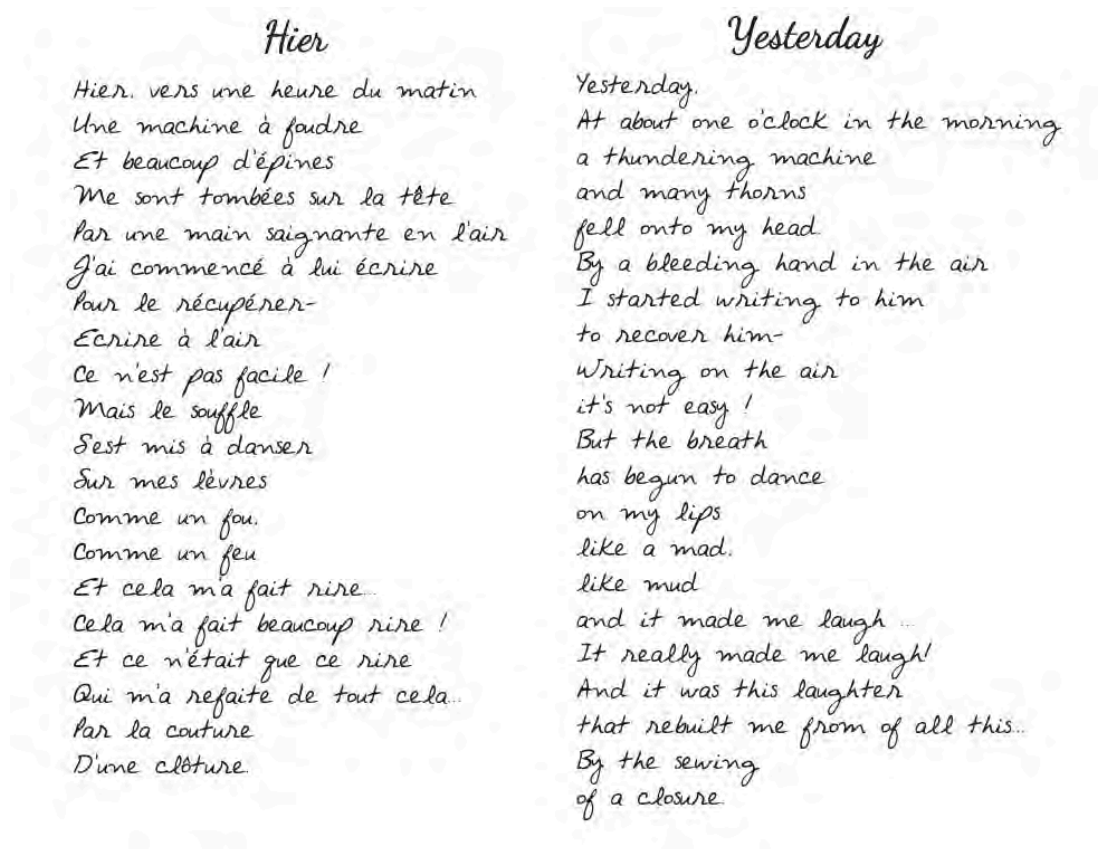 Hier
Hier, vers une heure du matin
Une machine à foudre
Et beaucoup d'épines
Me sont tombées sur la tête
Par une main saignante en l'air
J'ai commencé à lui écrire
Pour le récupérer-
Ecrire à l'air
Ce n'est pas facile !
Mais le souffle
S'est mis à danser
Sur mes lèvres
Comme un fou,
Comme un feu
Et cela m'a fait rire...
Cela m'a fait beaucoup rire !
Et ce n'était que ce rire
Qui m'a refaite de tout cela...
Par la couture
D'une clôture.
Yesterday
Yesterday,
At about one o'clock in the morning
a thundering machine
and many thorns
fell onto my head.
By a bleeding hand in the air
I started writing to him
to recover him-
Writing on the air
it's not easy !
But the breath
has begun to dance
on my lips
like a mad,
like mud
and it made me laugh ...
It really made me laugh!
And it was this laughter
that rebuilt me from of all this...
By the sewing
of a closure.